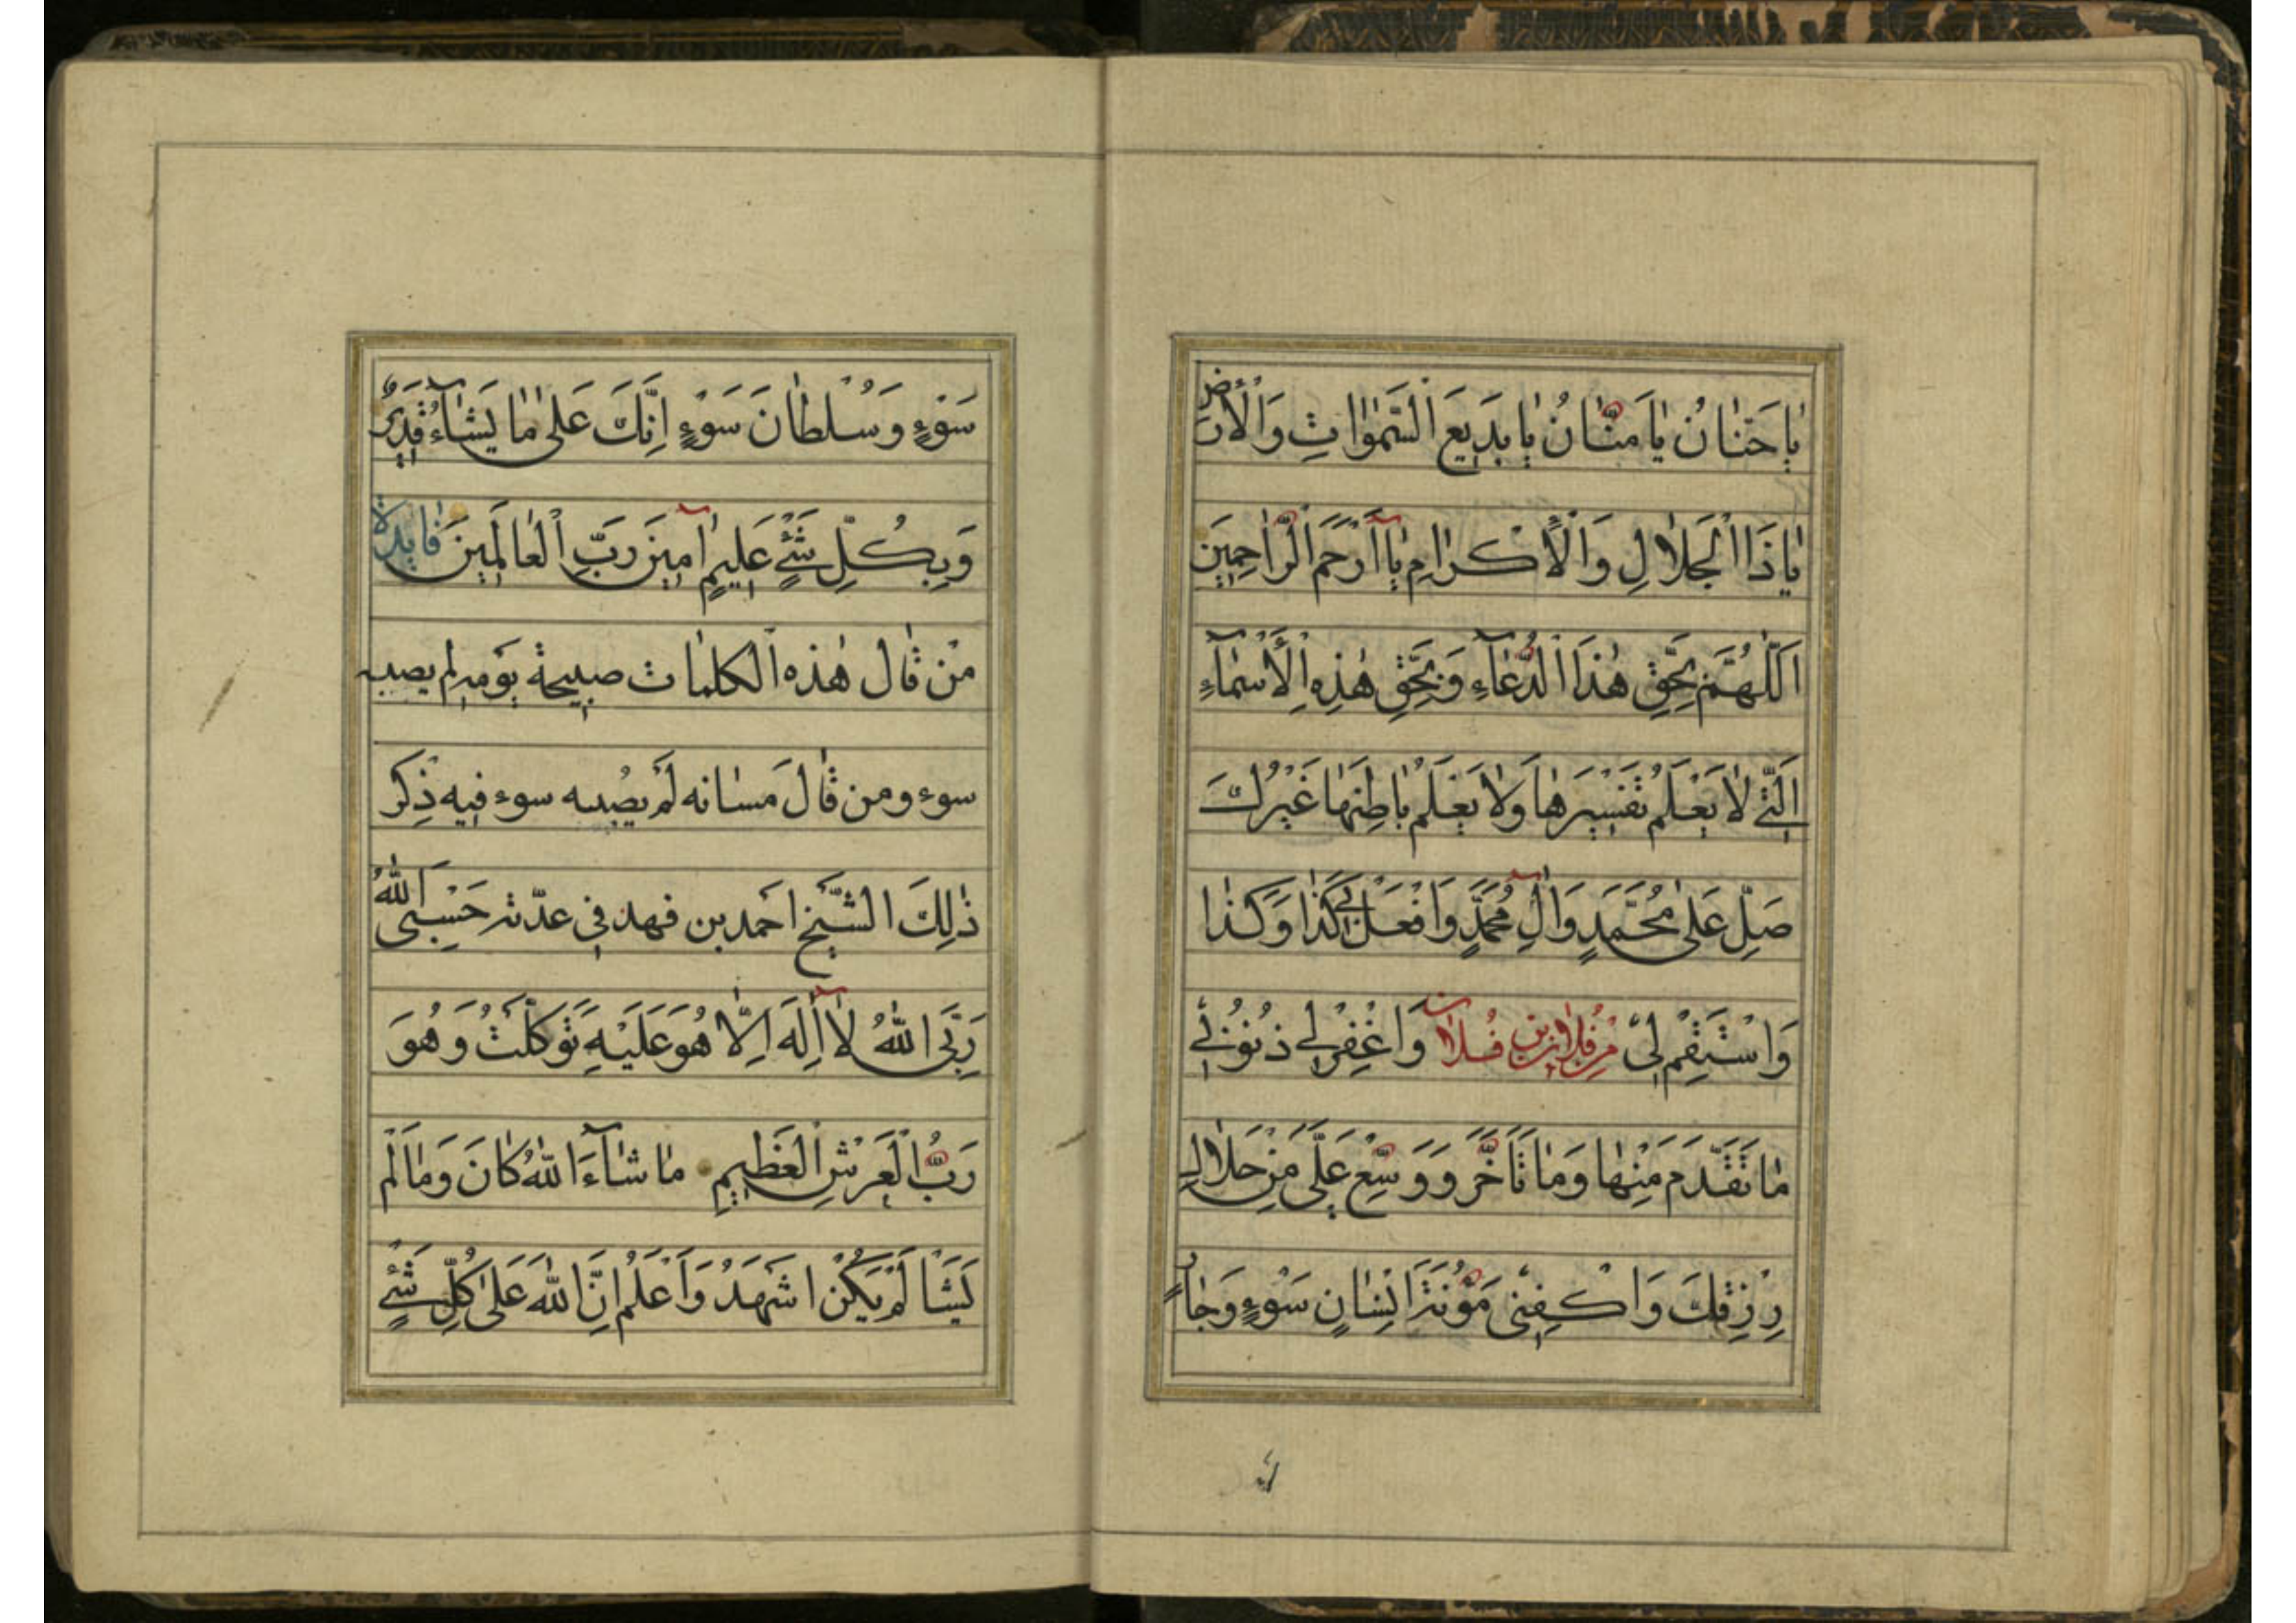 يٰا حَنّٰانُ يٰا مَنّٰانُ يٰا بَدِيعَ السَّمٰوٰاتِ وَالْأَرْضِ
يٰا ذَا الْجَلٰالِ وَالْأِكْرٰامِ يٰآ أَرْحَمَ الرّٰاحِمِينَ
اَللّٰهُمَّ بِحَقِّ هٰذَا الدُّعٰآءِ وَبِحَقِّ هٰذِهِ الْأَسْمٰآءِ
الَّتِي لٰا يَعْلَمُ تَفْسِيرَهٰا وَلٰا يَعْلَمُ بٰاطِنَهٰا غَيْرُكَ
صَلِّ عَلىٰ مُحَمَّدٍ وَاٰلِ مُحَمَّدٍ وَافْعَلْ بِي كَذٰا وَكَذٰا
وَانْتَقِمْ لِي مِنْ فُلٰان بْنِ فُلٰان وَاغْفِرْ لِي ذُنُوبِي
مٰا تَقَدَّمَ مِنْهٰا وَمٰا تَأَخَّرَ وَوَسِّعْ عَلَيَّ مِنْ حَلٰالِ
رِزْقِكَ وَاكْفِنِي مَؤُنَةَ اِنْسٰانِ سَوْءٍ وَجٰارِ
سَوْءٍ وَسُلْطٰانِ سَوْءٍ اِنَّكَ عَلىٰ مٰا يَشٰآءُ قَدِيرٌ
وَبِكُلِّ شَيْءٍ عَلِيمٌ اٰمِينَ رَبَّ الْعٰالَمِينَ فٰايدة
من قٰال هٰذه الكلمٰات صبيحة يومه لم يصبه
سوء ومن قٰالَ مسٰائه لَم يصبه سوء فيه ذِكر
ذٰلِكَ الشَّيخ احمد بن فهد في عدّته حَسْبِيَ اللّٰهُ
رَبِّيَ اللّٰهُ لٰآ اِلٰهَ اِلّٰا هُوَ عَلَيْهِ تَوَكَّلْتُ وَهُوَ
رَبُّ الْعَرْشِ الْعَظِيمِ مٰا شٰآءَ اللّٰهُ كٰانَ وَمٰا لَمْ
يَشَأْ لَمْ يَكُنْ اَشْهَدُ وَاَعْلَمُ اَنَّ اللّٰهَ عَلىٰ كُلِّ شَيْءٍ